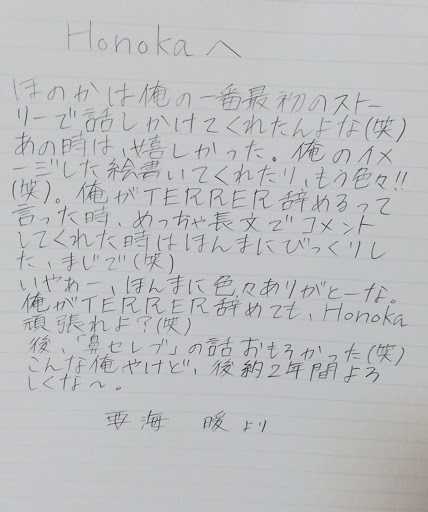 Honokaへ
ほのかは俺の一番最初のストー
リーで話しかけてくれたんよな(笑)
あの時は、嬉しかった。俺のイメ
ージした絵書いてくれたり、もう色々!!
(笑)。俺がTERRER辞めるって
言った時、めっちゃ長文でコメント
してくれた時はほんまにびっくりし
た、まじで(笑)
いやぁー、ほんまに色々ありがとーな。
俺がTERRER辞めても、Honoka
頑張れよ?(笑)
後、「鼻セレブ」の話おもろかった(笑)
こんな俺やけど、後約2年間よろ
しくな～。
要海 暖より